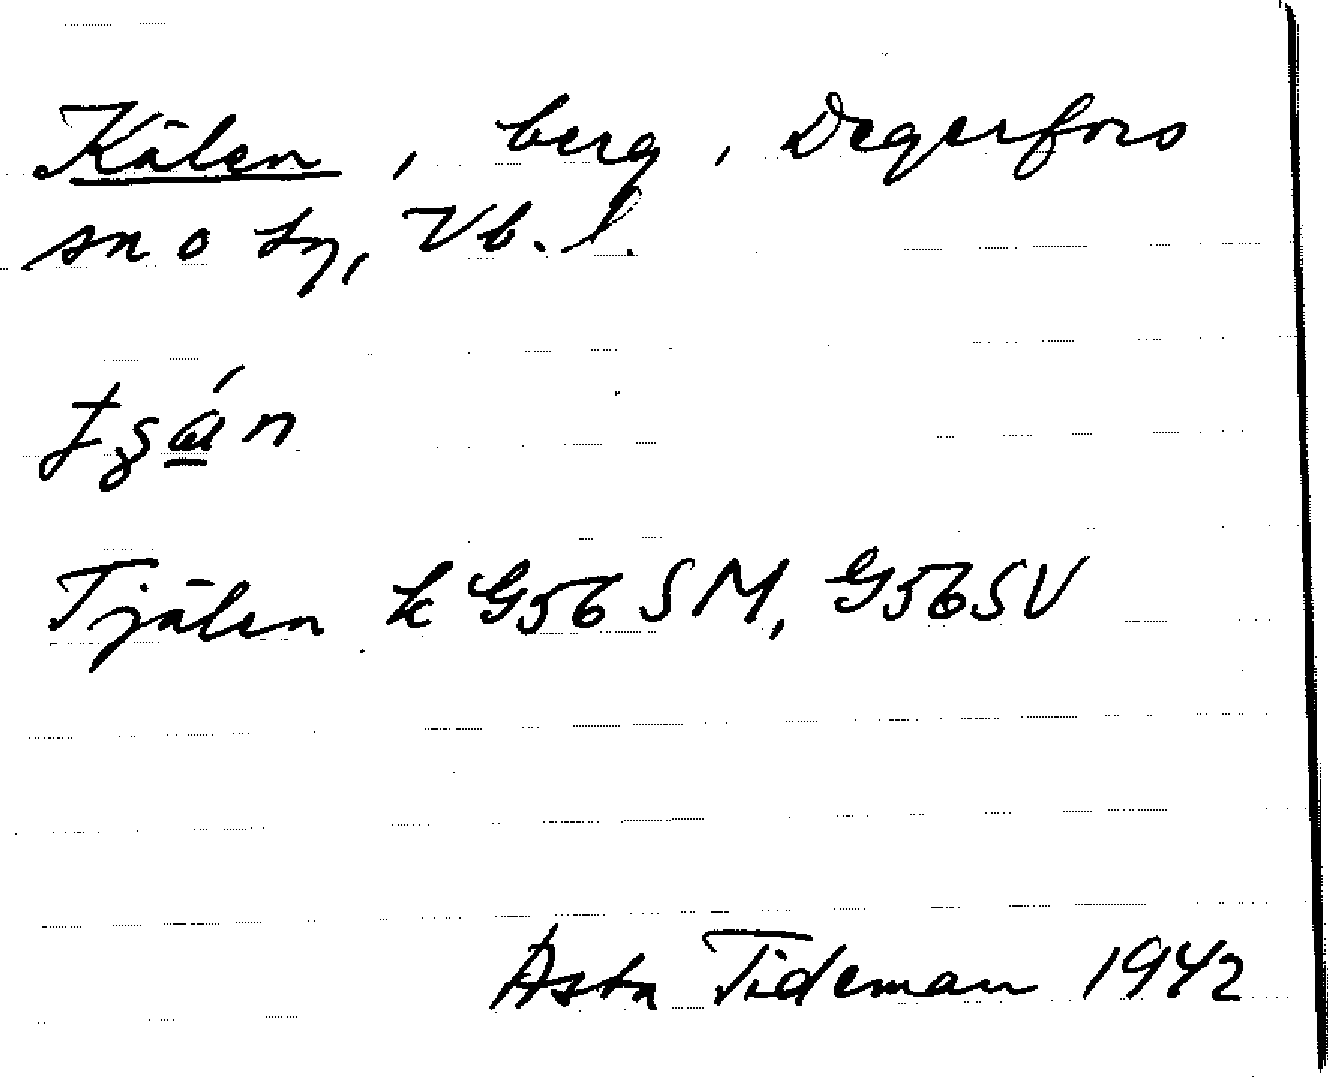 Kälen, berg, Degerfors
sn o tg, Vb. l.
Tjälen k G56 SM, G56SV
Asta Tideman 1942